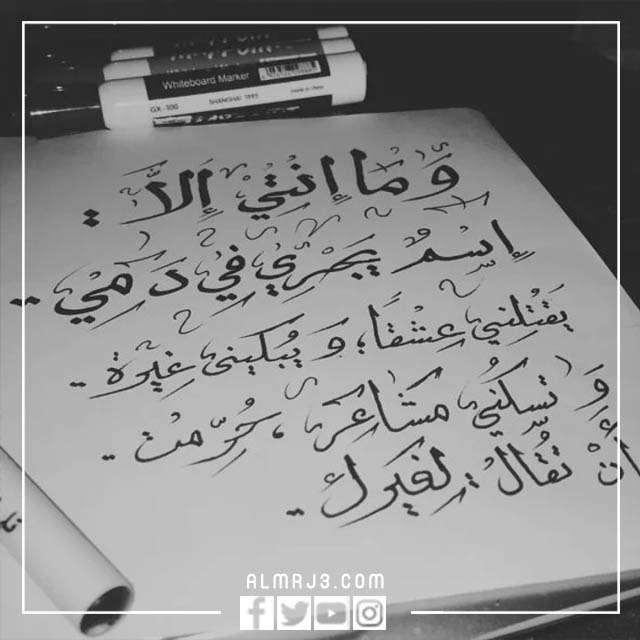 Whiteboard Marker
GX-100 SHANGHAI 1995 made in China
وَ مَا إِنْتِيْ إِلَّا :
إِسْمٌ يَجْرِيْ فِيْ دَمِيْ .
يَقْتُلنيْ عِشْقًا ، وَ يُبكينيْ غِيْرة .
وَ تسكُنُنيْ مشَاعِر ، حُرّمت .
أنْ تقُالْ لِغيرك .
ALMRJ3.COM